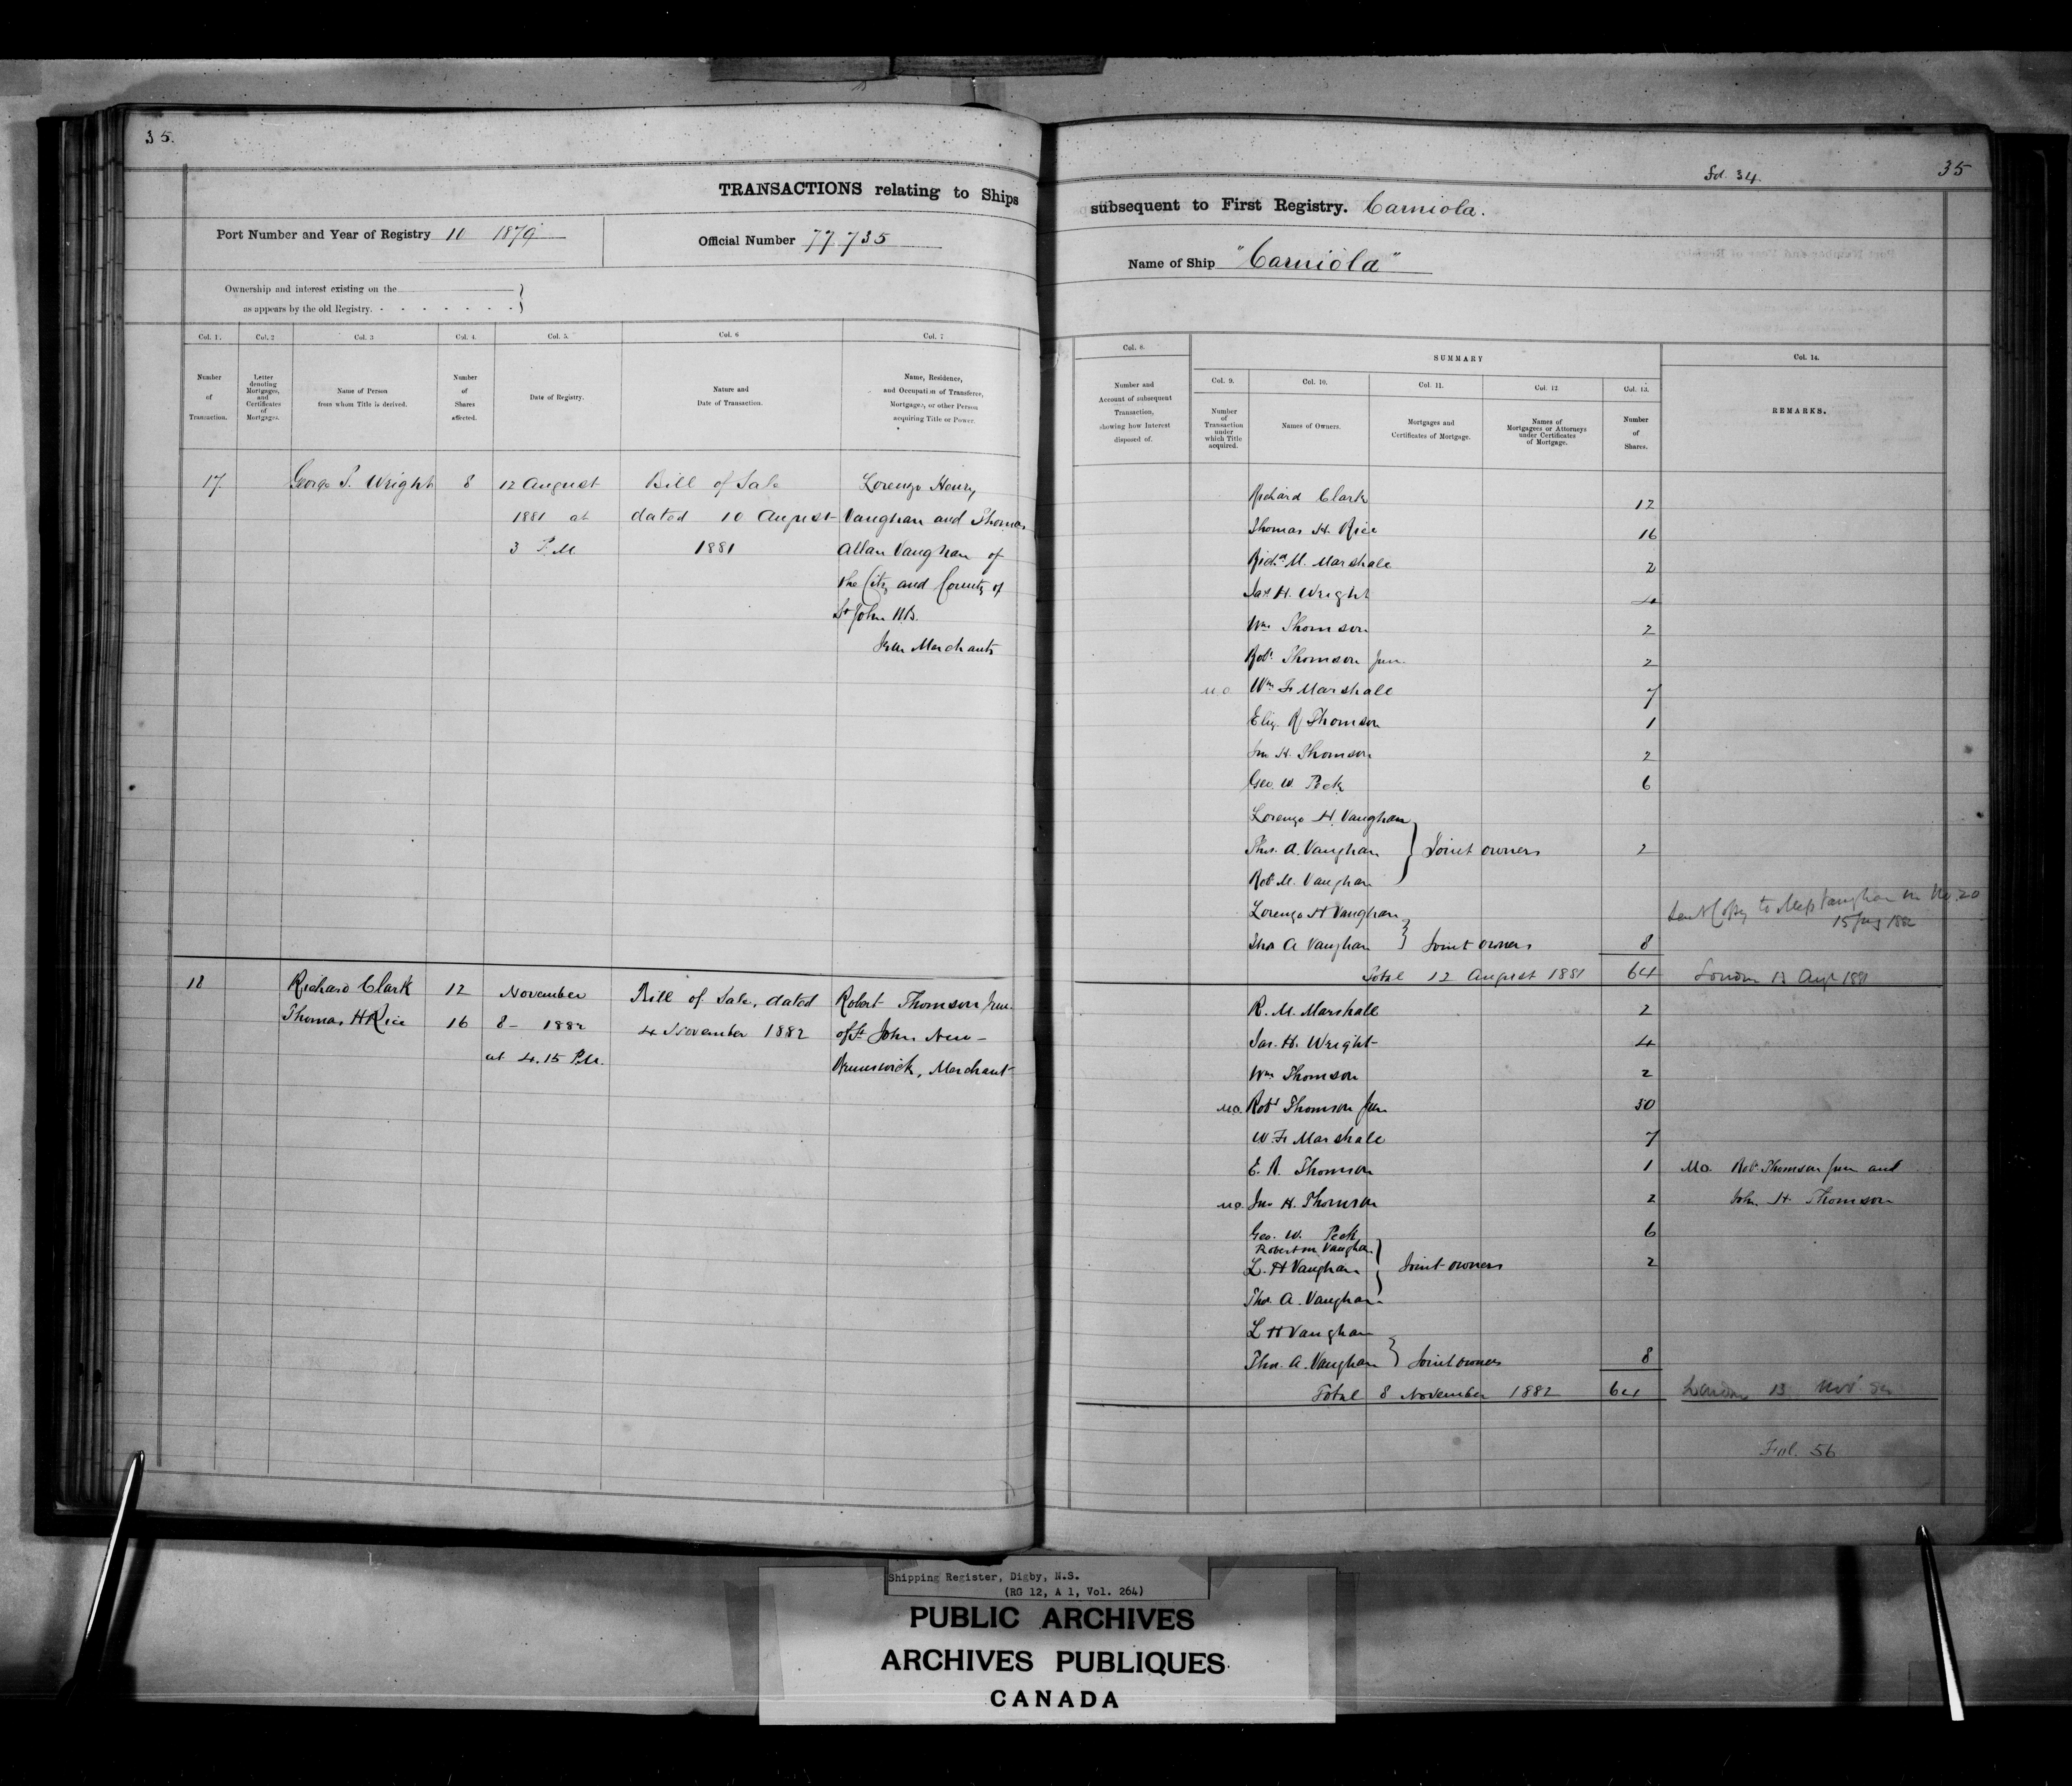 35.
TRANSACTIONS relating to Ships
Port Number and Year of Registry 10 1879
Official Number 77735
Ownership and interest existing on the
as appears by the old Registry.
Col. 1.
Col. 2
Col. 3
Col. 4.
Col. 5.
Col. 6
Col. 7
Number
of
Transaction.
Letter
denoting
Mortgages,
and
Certificates
of
Mortgages.
Name of Person
from whom Title is derived.
Number
of
Shares
affected.
Date of Registry.
Nature and
Date of Transaction.
Name, Residence,
and Occupation of Transferee,
Mortgagee, or other Person
acquiring Title or Power.
17 George S. Wright 8 12 August Bill of Sale Lorenzo Henry
1881 at dated 10 August Vaughan and Thomas
3 P.M 1881 Allan Vaughan of
the City and County of
St John N.B.
Merchants
18 Richard Clark 12 November Bill of Sale, dated Robert Thomson Jun.
Thomas H Rice 16 8 - 1882 4 November 1882 of St John New-
at 4.15 P.M. Brunswick, Merchant
Fol. 34.
35
subsequent to First Registry. Carniola.
Name of Ship "Carniola"
Col. 8.
SUMMARY
Col. 14.
Col. 9.
Col. 10.
Col. 11.
Col. 12
Col. 13.
Number and
Account of subsequent
Transaction,
showing how Interest
disposed of.
Number
of
Transaction
under
which Title
acquired.
Names of Owners.
Mortgages and
Certificates of Mortgage.
Names of
Mortgagees or Attorneys
under Certificates
of Mortgage.
Number
of
Shares.
REMARKS.
Richard Clark 12
Thomas H. Rice 16
Richd M. Marshall 2
Jas H. Wright 4
Wm Thomson 2
Robt Thomson Jun. 2
M.O. Wm F Marshall 7
Eliz. R Thomson 1
Jno H. Thomson 2
Geo. W. Peck 6
Lorenzo H. Vaughan
Thos. A. Vaughan } Joint owners 2
Robt M. Vaughan
Lorenzo H Vaughan
Thos A Vaughan } Joint owners 8
Sent Copy to Vaughan No. 20
15 1882
Total 12 August 1881 64 London 13 Augt 1881
R. M. Marshall 2
Jas. H. Wright 4
Wm Thomson 2
M.O. Robt Thomson Jun 30
W. F. Marshall 7
E. R. Thomson 1 M.O. Robt Thomson Jun and
M.O. Jno H. Thomson 2 John H. Thomson
Geo. W. Peck 6
Robert M Vaughan
L. H Vaughan } Joint owners 2
Thos. A. Vaughan
L H Vaughan
Thos. A. Vaughan } Joint owners 8
Total 8 November 1882 64 London 13 Novr 82
Fol. 56
Shipping Register, Digby, N.S.
(RG 12, A 1, Vol. 264)
PUBLIC ARCHIVES
ARCHIVES PUBLIQUES
CANADA